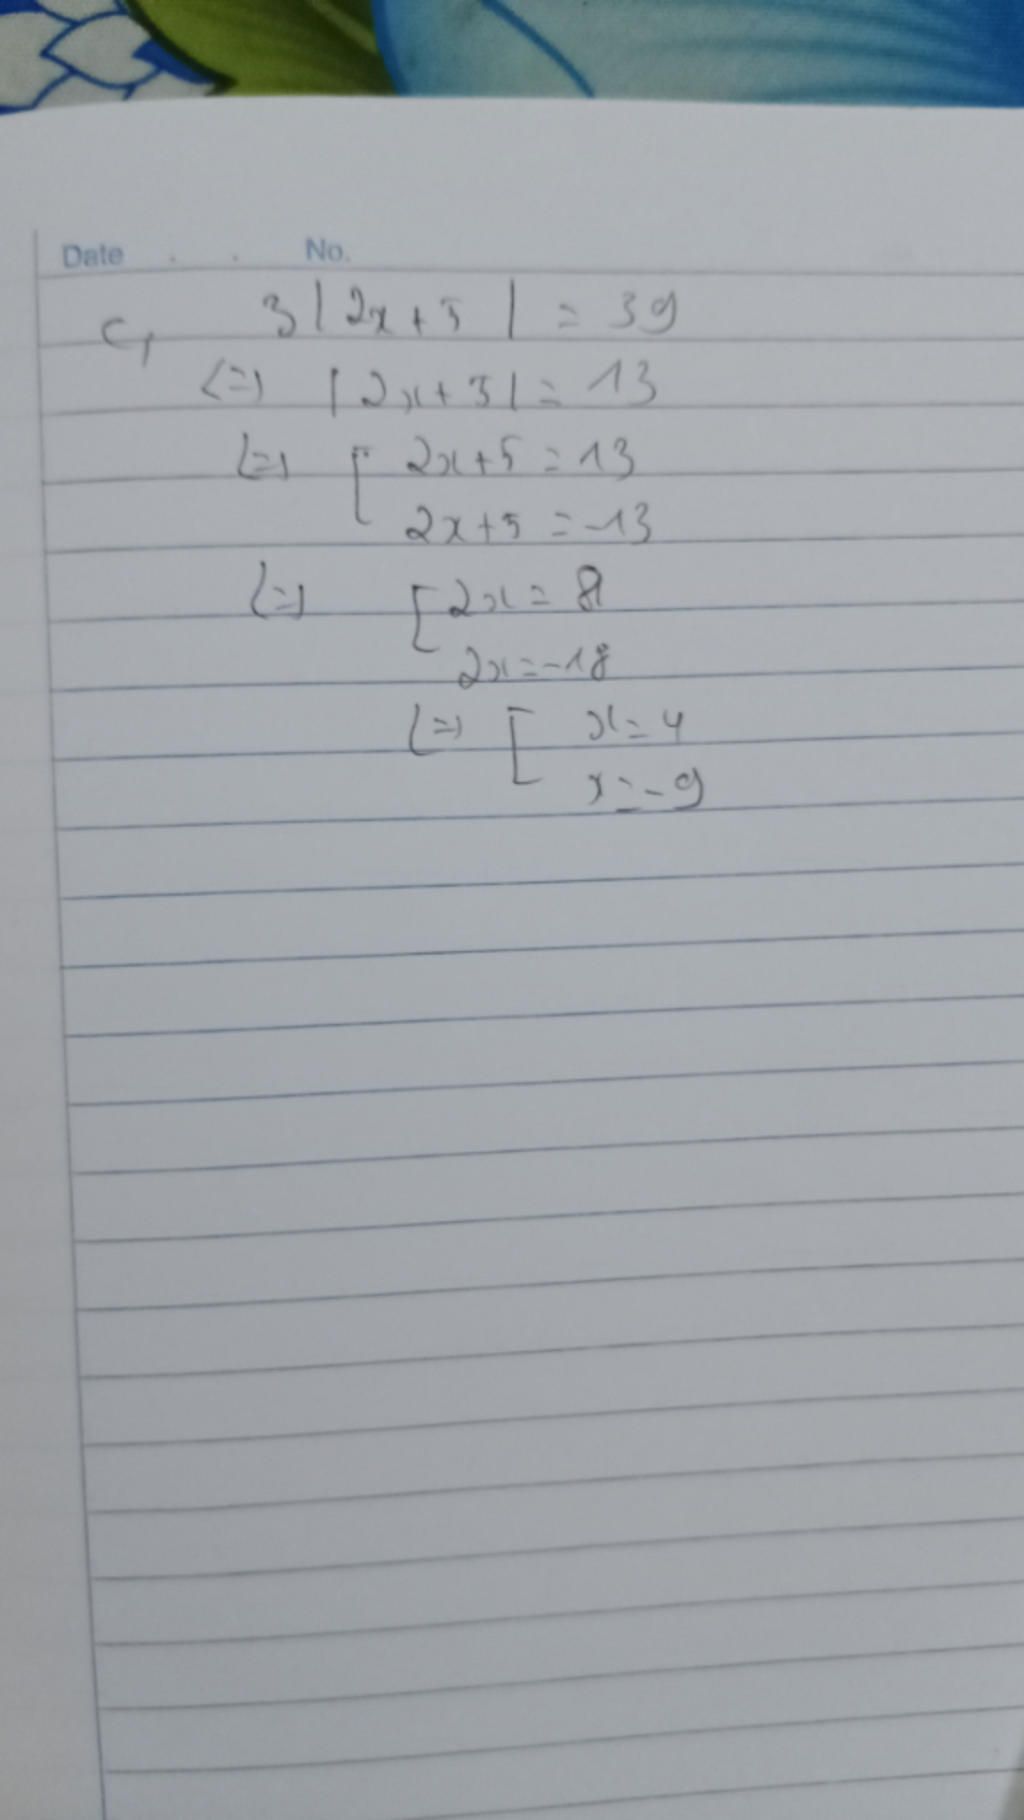 Date . . No.
c, 3|2x+5| = 39
<=> |2x+5| = 13
<=> [ 2x+5 = 13
2x+5 = -13
<=> [ 2x = 8
2x = -18
<=> [ x = 4
x = -9